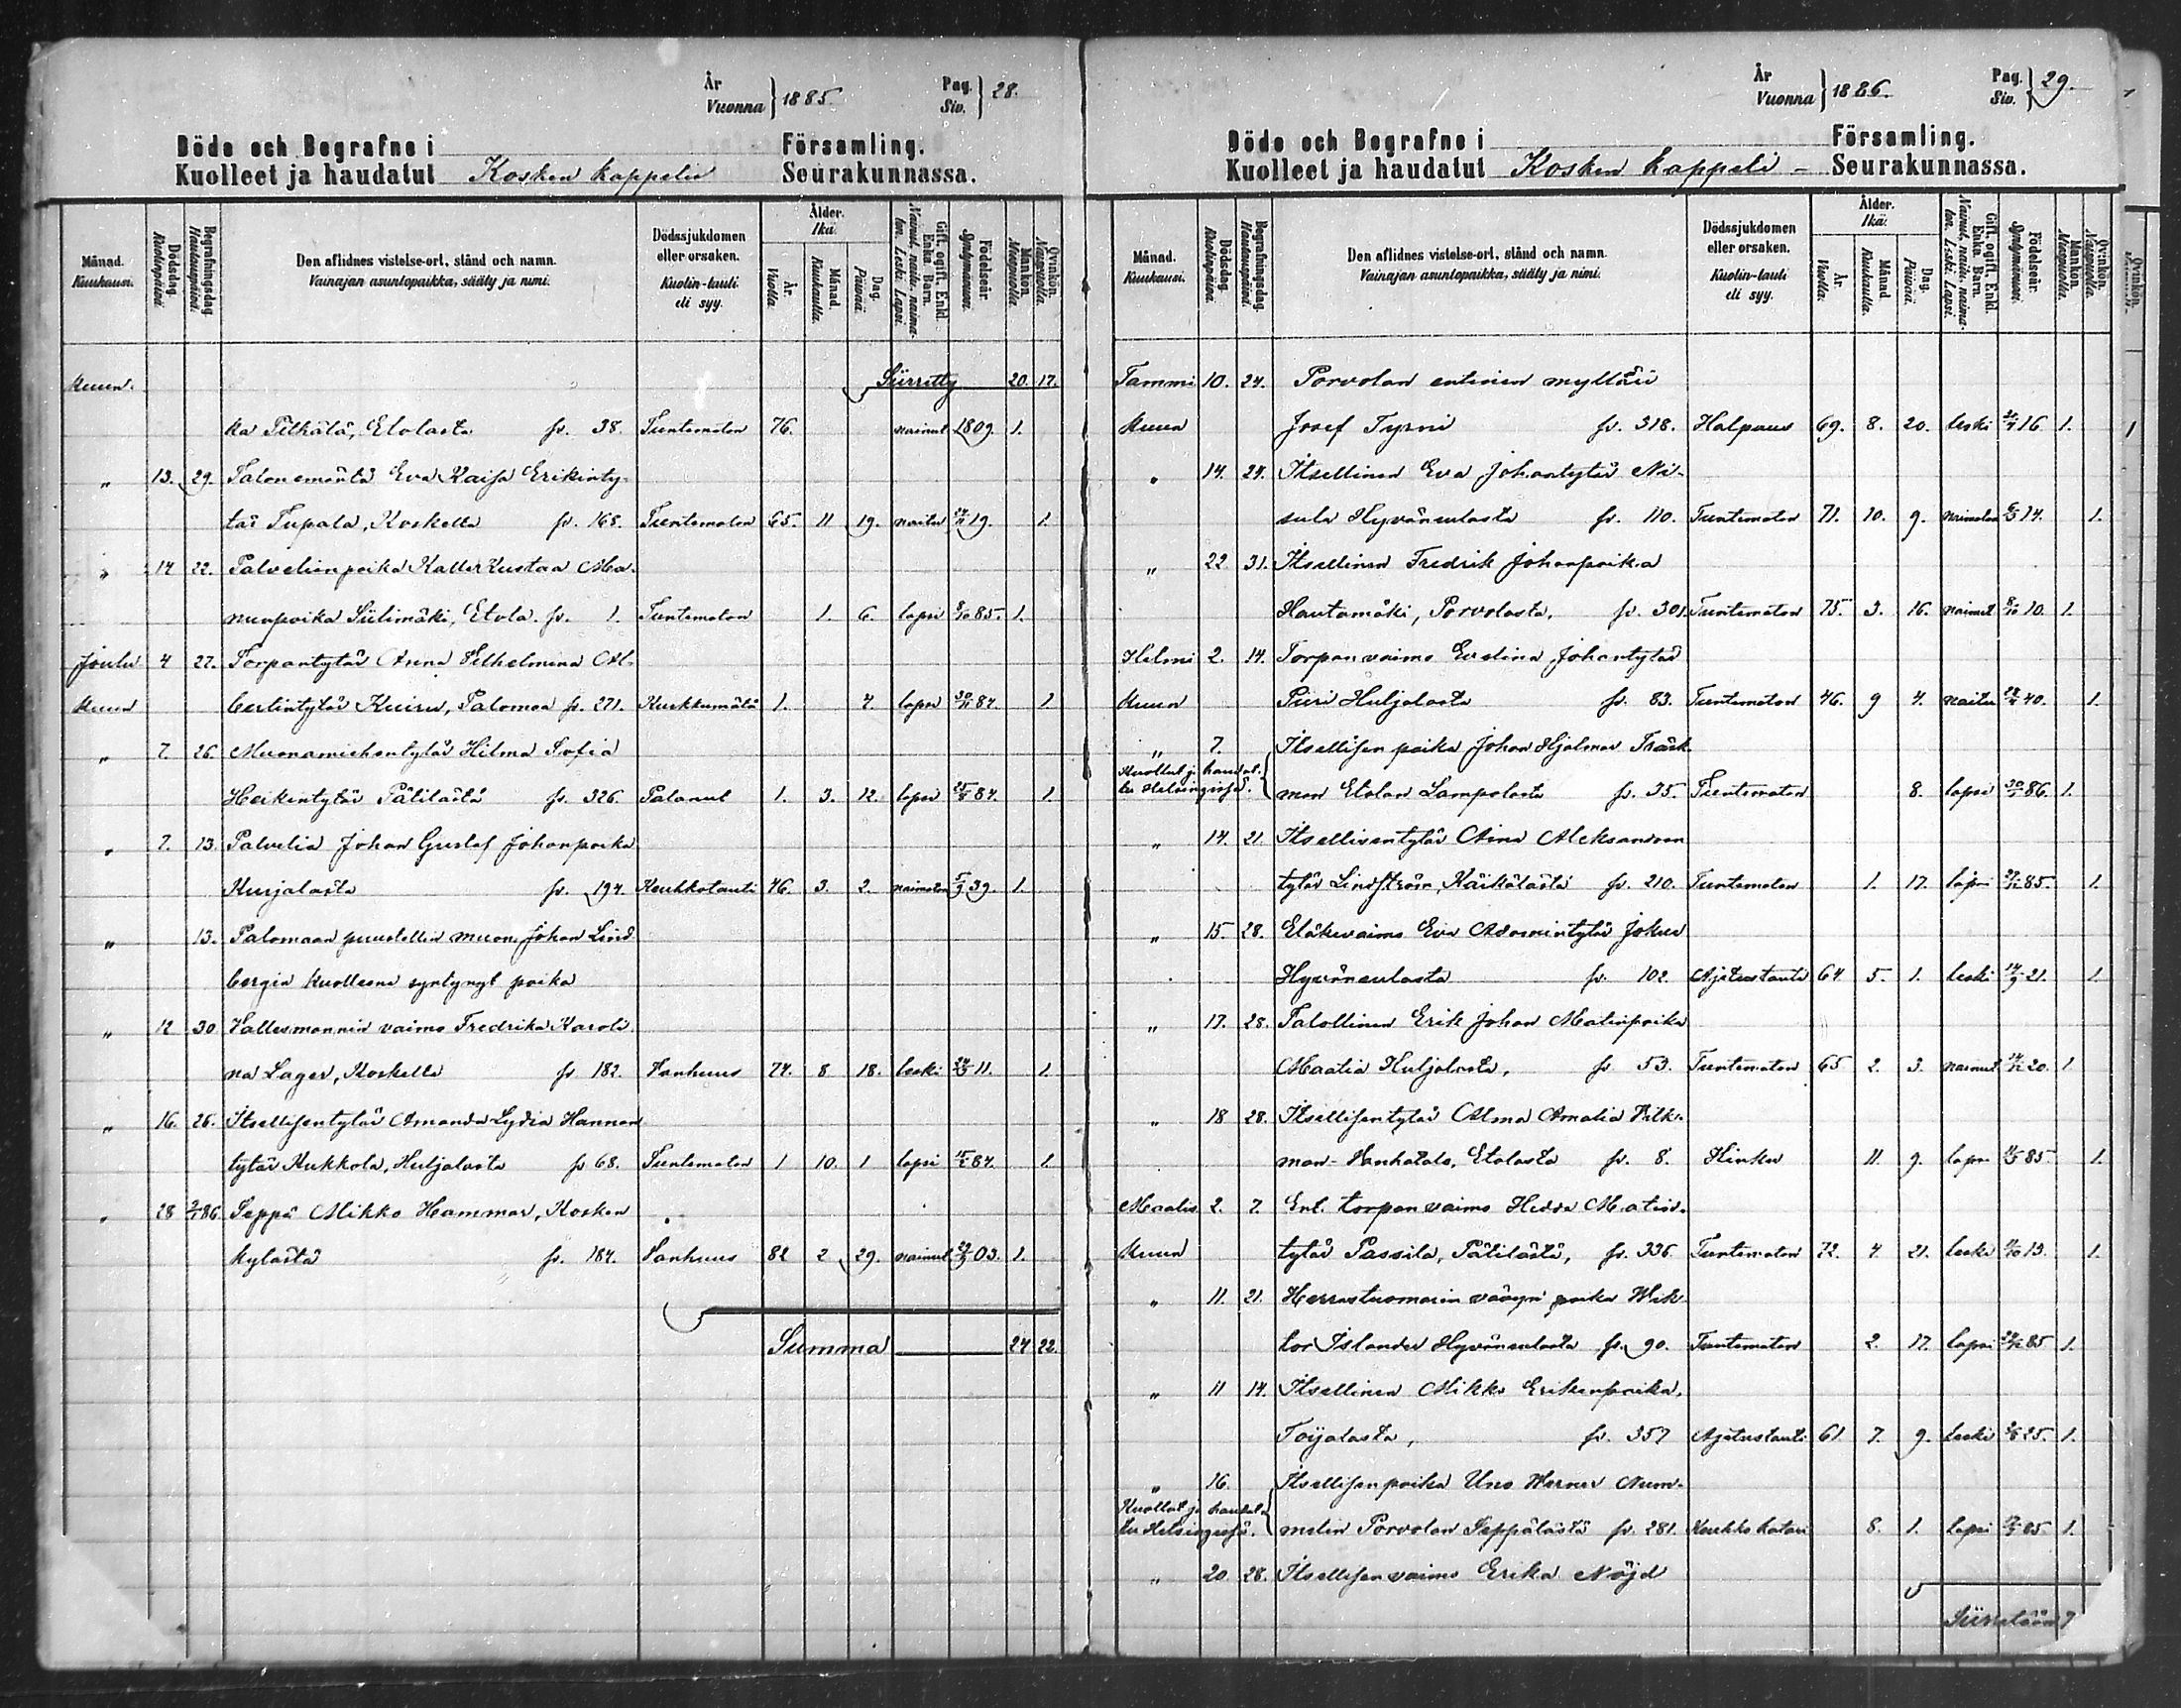 År
Vuonna } 1885.
Pag.
Siv. } 28.
Döde och Begrafne i Församling.
Kuolleet ja haudatut Kosken kappelin Seurakunnassa.
Månad. Kuukausi.
Dödsdag. Kuolinpäivä.
Begrafningsdag. Hautauspäivä.
Den aflidnes vistelse-ort, stånd och namn. Vainajan asuntopaikka, sääty ja nimi.
Dödssjukdomen eller orsaken. Kuolin-tauti eli syy.
Ålder. Ikä.
År. Vuotta.
Månad. Kuukautta.
Dag. Päivää.
Gift, ogift, Enkl. Enka. Barn. Nainut, naitu, naimaton. Leski. Lapsi.
Födelseår. Syntymävuosi.
Mankön. Miespuolia.
Qvinkön. Naispuolia.
kuun. Siirretty 20. 17.
ka Pitkälä, Etolasta fv. 38. Tuntematon 76. nainut 1809. 1.
" 13. 29. Talonemäntä Eva Kaisa Erikinty-
tär Tupala, Koskella fv. 168. Tuntematon 65. 11 19. naitu 19. 1.
" 14 22. Palvelianpoika Kalle Kustaa Ma-
nunpoika Sülimäki, Etola. fv. 1. Tuntematon 1. 6. lapsi 8/10 85. 1.
Joulu 4 27. Torpantytär Anna Vilhelmina Al-
kuun bertintytär Kuisu, Palomaa fv. 271. Kurkkumätä 1. 4. lapsi 30/11 84. 1
" 7. 26. Muonamiehentytär Hilma Sofia
Heikintytär Pätilästä fv. 326. Palanut 1. 3. 12. lapsi 25/8 84. 1.
" 7. 13. Palvelia Johan Gustaf Johanpoika
Kurjalasta fv. 194. Keuhkotauti 46. 3. 2. naimaton 5/9 39. 1.
" 13. Palomaan puustellin muon. Johan Lind
bergin kuolleena syntynyt poika
" 12 30. Vallesmannin vaimo Fredrika Karoli-
na Lager, Koskella fv 182. Vanhuus 74. 8 18. leski 24/3 11. 1.
" 16. 26. Itsellisentytär Amanda Lydia Hannan
tytär Kukkola, Huljalasta fv 68. Tuntematon 1 10. 1 lapsi 15/2 84. 1.
" 28 2/1 86 Seppä Mikko Hammar, Kosken
kylästä fv. 184. Vanhuus 82 2 29. nainut 29/9 03. 1.
Summa 24 22.
År
Vuonna } 1886.
Pag.
Siv. } 29.
Döde och Begrafne i Församling.
Kuolleet ja haudatut Kosken kappeli - Seurakunnassa.
Månad. Kuukausi.
Dödsdag. Kuolinpäivä.
Begrafningsdag. Hautauspäivä.
Den aflidnes vistelse-ort, stånd och namn. Vainajan asuntopaikka, sääty ja nimi.
Dödssjukdomen eller orsaken. Kuolin-tauti eli syy.
Ålder. Ikä.
År. Vuotta.
Månad. Kuukautta.
Dag. Päivää.
Gift, ogift, Enkl. Enka. Barn. Nainut, naitu, naimaton. Leski. Lapsi.
Födelseår. Syntymävuosi.
Mankön. Miespuolia.
Qvinkön. Naispuolia.
Tammi 10. 24. Porvolan entinen mylläri
kuun Josef Tyrni fv. 318. Halpaus 69. 8. 20. leski 16. 1.
" 14. 24. Itsellinen Eva Johantytär Ni-
sula Hyväneulasta fv. 110. Tuntematon 71. 10. 9. naimaton 5/3 14. 1.
" 22 31. Itsellinen Fredrik Johanpoika
Hautamäki, Porvolasta, fv. 301. Tuntematon 75. 3. 16. nainut 6/10 10. 1.
Helmi 2. 14. Torpan vaimo Evelina Johantytär
kuun Piiri Huljalasta fv. 83. Tuntematon 46. 9 4. naitu 40. 1.
" 7. Itsellisen poika Johan Hjalmar Träsk
Kuollut ja haudat-
tu Helsingissä. man Etolan Lampolasta fv. 35. Tuntematon 8. lapsi 30/1 86. 1.
" 14. 21. Itsellisentytär Aina Aleksandran
tytär Lindström, Käikälästä fv. 210. Tuntematon 1. 17. lapsi 27/12 85. 1.
" 15. 28. Eläkevaimo Eva Adamintytär Jokue
Hyväneulasta fv. 102. Ajetustauti 64 5. 1. leski 14/9 21. 1.
" 17. 28. Talollinen Erik Johan Matinpoika
Maatia Huljalasta, fv 53. Tuntematon 65 2. 3. nainut 14/12 20. 1
" 18 28. Itsellisentytär Alma Amalia Vilk-
man- Vanhatalo, Etolasta fv. 8. Hinku 11. 9. lapsi 9/3 85. 1.
Maalis 2. 7. Ent. torpan vaimo Hedda Matin-
kuun tytär Passila, Pätilästä, fv. 336. Tuntematon 72. 4. 21. leski 9/10 13. 1.
" 11. 21. Herrastuomarin vävyn poika Wik-
tor Islander Hyväneulasta fv. 90. Tuntematon 2. 17. lapsi 22/12 85 1.
" 11 14. Itsellinen Mikko Erikinpoika,
Toijalasta, fv. 357 Ajetustauti 61. 7. 9. leski 25. 1.
" 16. Itsellisenpoika Uno Werner Num-
Kuollut ja haudat-
tu Helsingissä. melin Porvolan Seppälästä fv. 281. Keuhkokatari 8. 1. lapsi 85. 1.
" 20. 28. Itsellisen vaimo Erika Nöjd
Siirretään